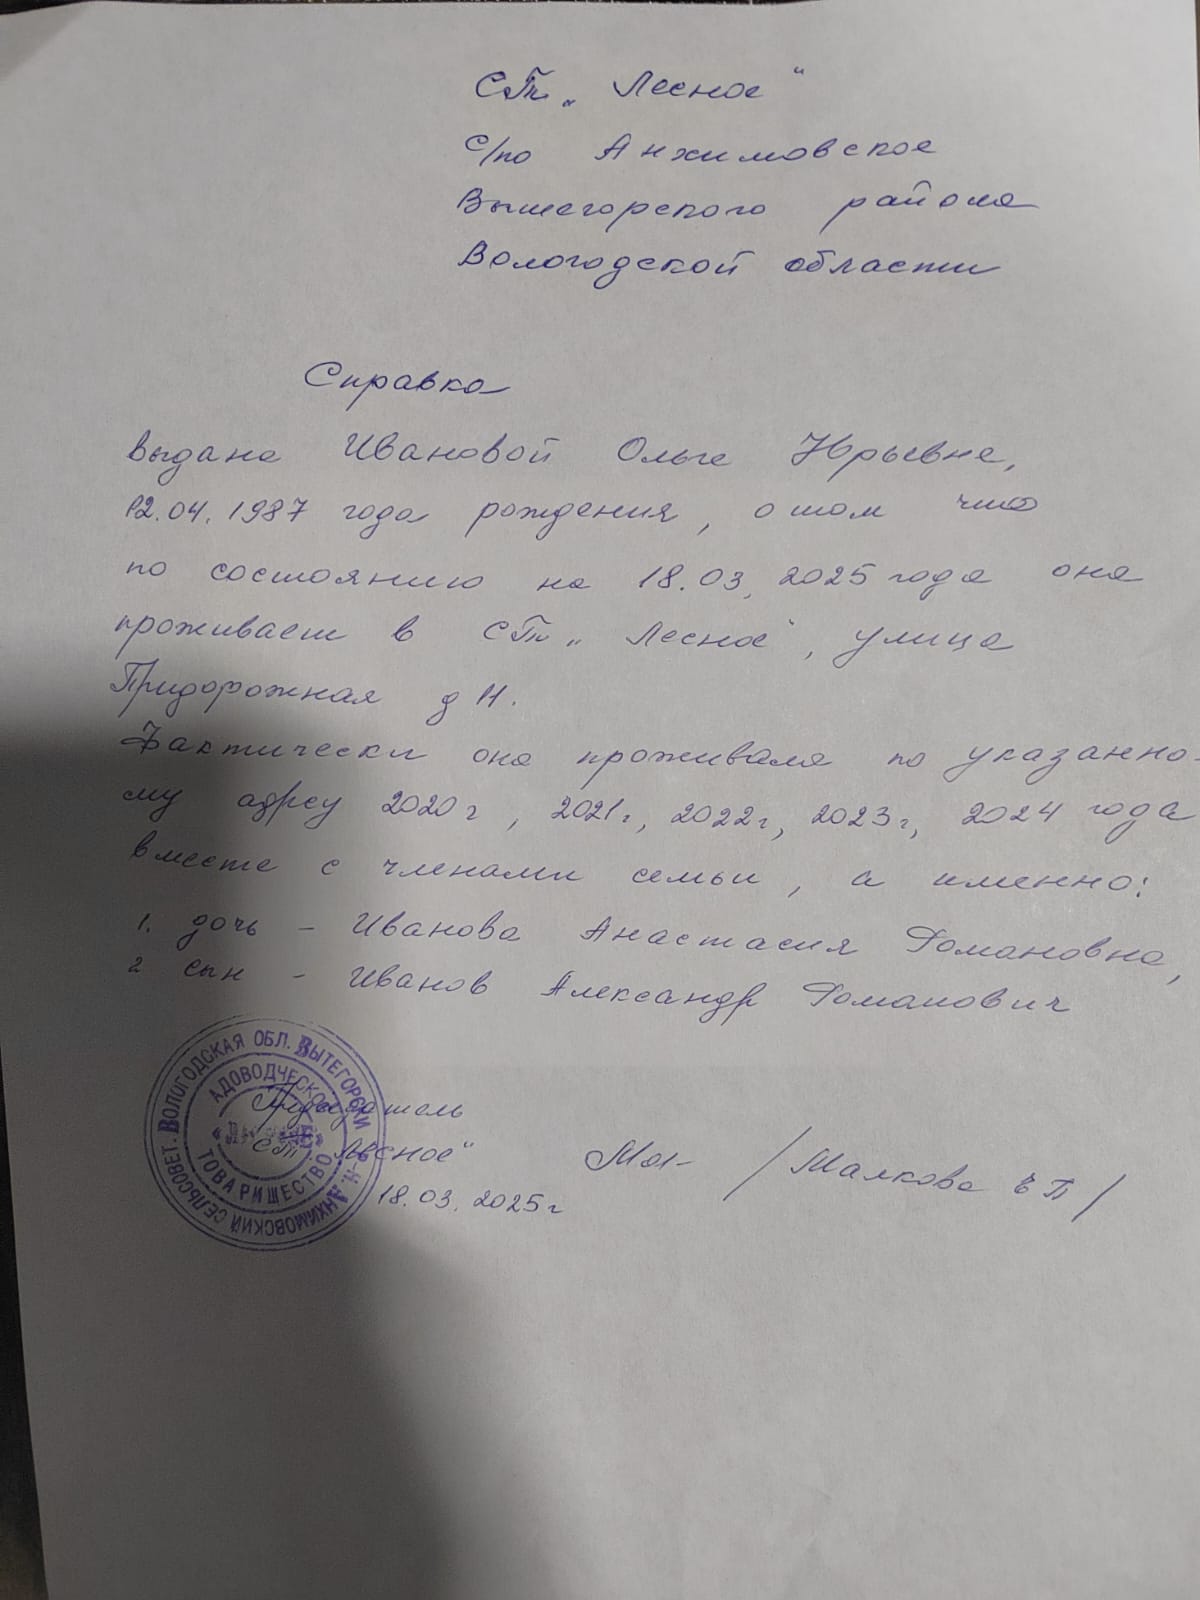 СТ „Лесное"
с/по Анхимовское
Вытегорского района
Вологодской области
Справка
выдана Ивановой Ольге Юрьевне,
12.04.1987 года рождения, о том что
по состоянию на 18.03.2025 года она
проживает в СТ „Лесное", улица
Придорожная д 11.
Фактически она проживала по указанно-
му адресу 2020г, 2021г, 2022г, 2023г, 2024 года
вместе с членами семьи, а именно:
1. дочь - Иванова Анастасия Романовна,
2 сын - Иванов Александр Романович
Председатель
СТ „Лесное"
/Малкова Е П/
18.03.2025г
ВОЛОГОДСКАЯ ОБЛ. ВЫТЕГОРСКИЙ Р-Н. АНХИМОВСКИЙ СЕЛЬСОВЕТ.
САДОВОДЧЕСКОЕ
ТОВАРИЩЕСТВО